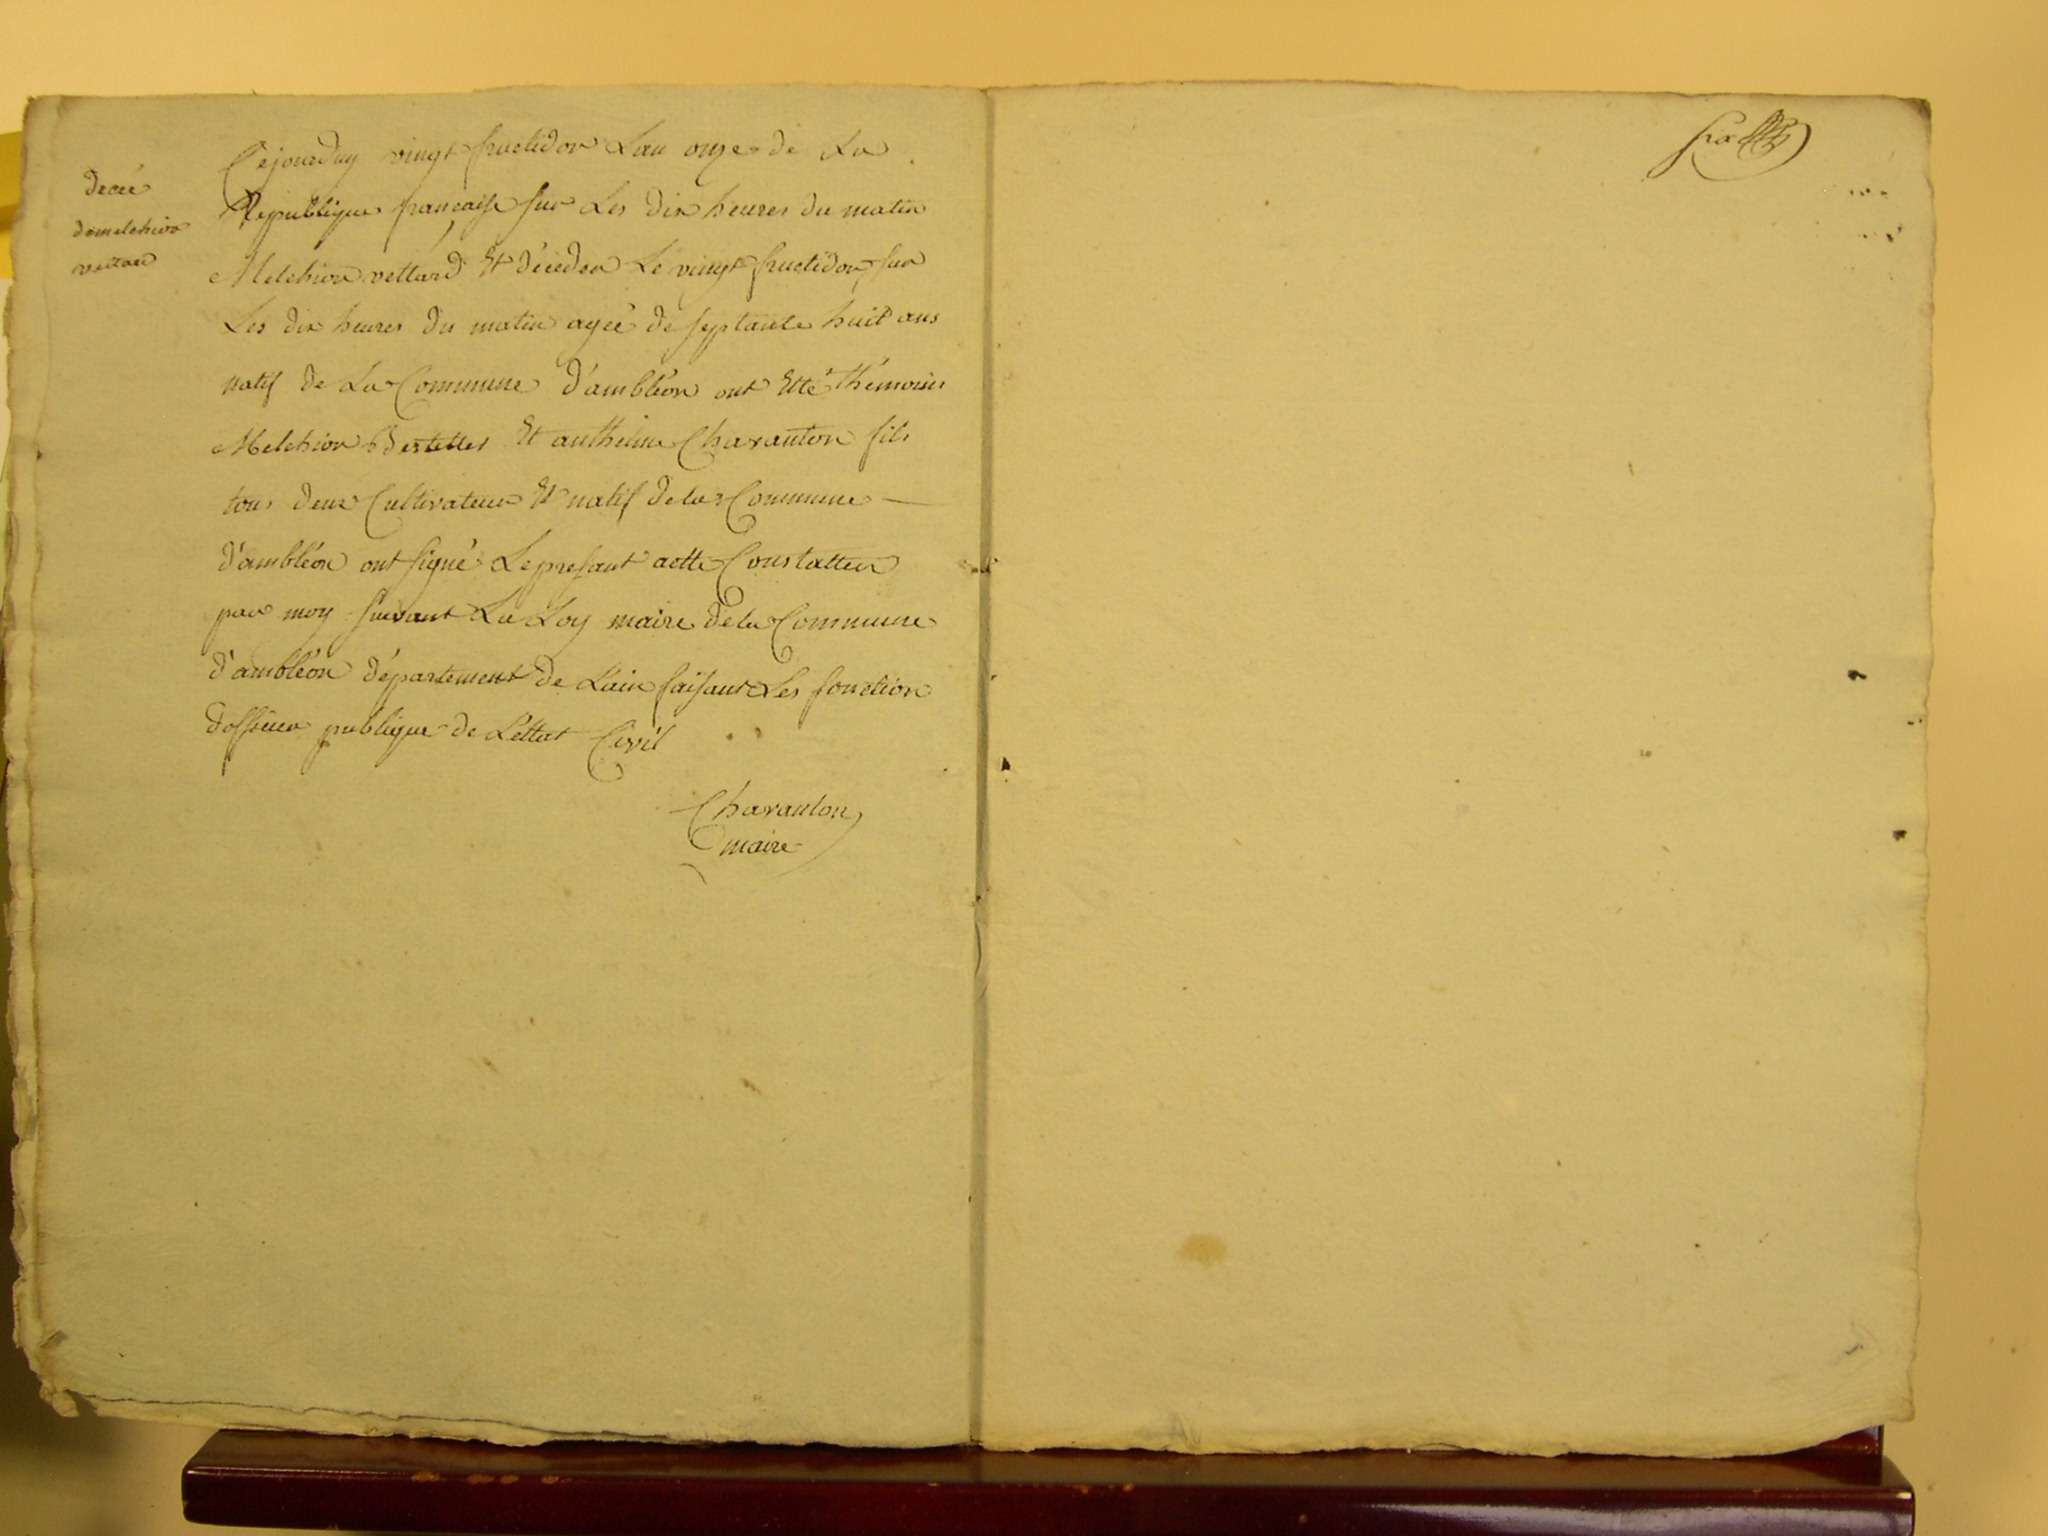 decée
demelchior
vettard
Cejourduy vingt fructidor Lan onze de La
Republique francaise sur Les dix heures du matin
Melchior vettard Et déceder Le vingt fructidor sur
Les dix heures du matin ageé de septante huit ans
natif de La Commune d'ambléon ont Etté thémoins
Melchior Et anthelme Charanton fils
tous deux Cultivateur Et natif de la Commune
d'ambléon ont signé Le presant actte Constatter
par moy suivant La Loy maire de la Commune
d'ambléon département de Lain faisant Les fonction
dofficier publique de Lettat Civil
Charanton
maire